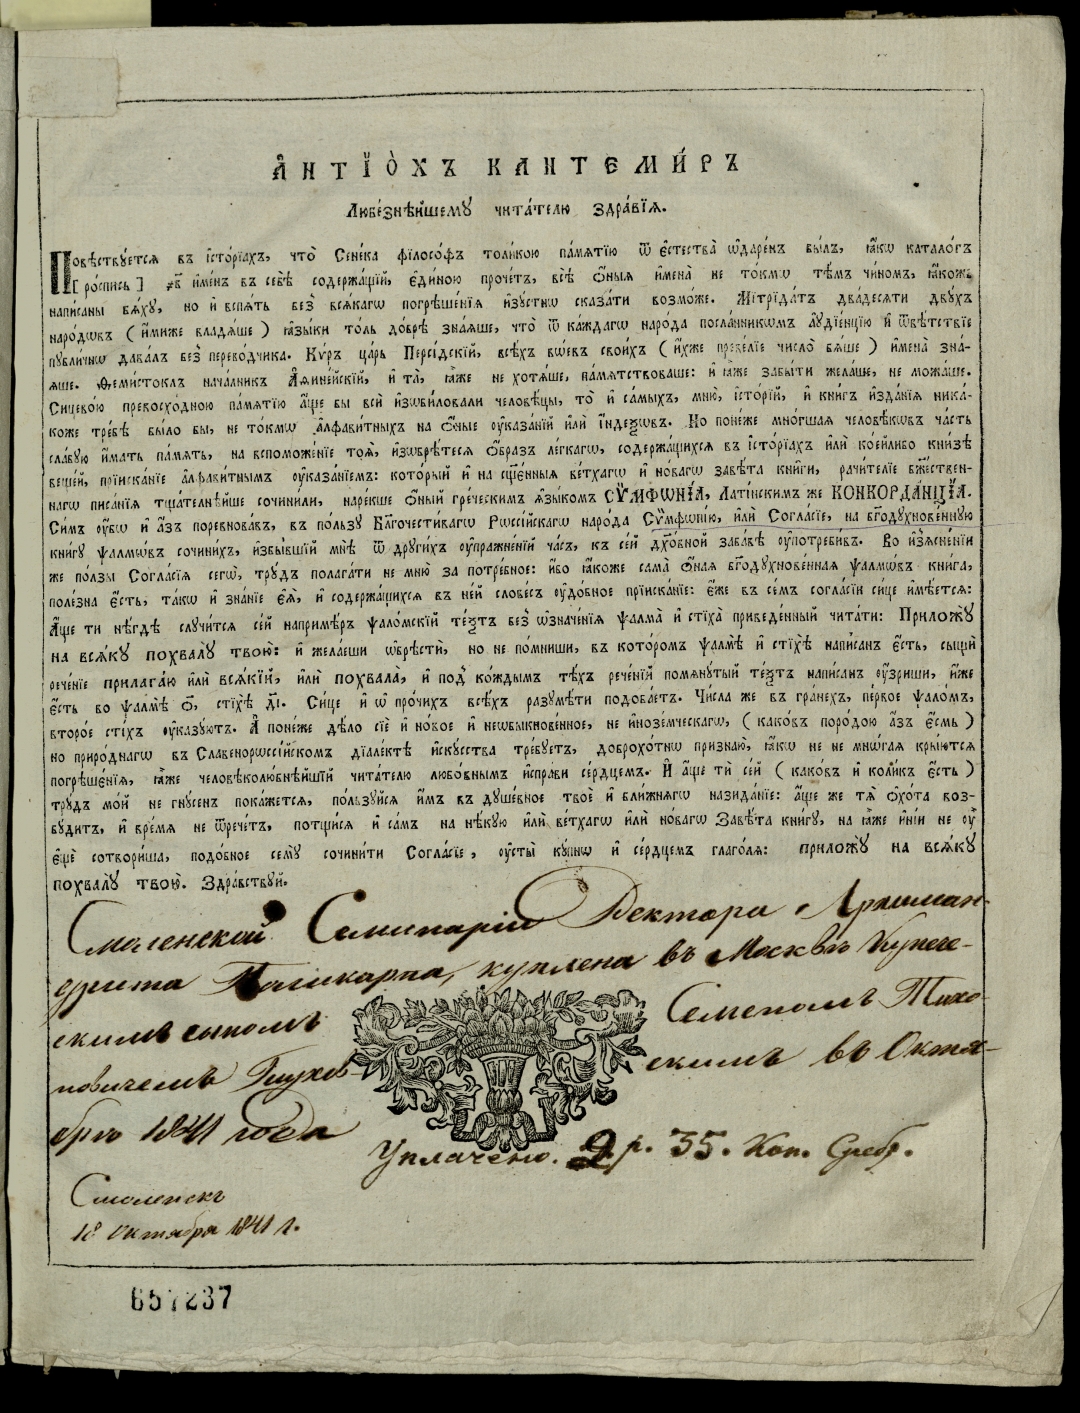 А҆НТІО́ХЪ КАНТЕМИ́РЪ
Любе́знѣйшему чита́телю здра́вїѧ.
Повѣствꙋ́етсѧ въ і҆сто́рїахъ, что̀ Сене́ка фїлосо́фъ толи́кою па́мѧтїю ѿ є҆стества̀ ѡ҆даре́нъ бы́лъ, ꙗ҆́кѡ катало́гъ
[ ро́спись ] ҂в҃ и҆ме́нъ въ себѣ̀ содержа́щїй, є҆ди́ною проче́тъ, всѣ̀ ѻ҆́ныѧ и҆мена̀ не то́кмѡ тѣ́мъ чи́номъ, ꙗ҆́коже
напи́саны бѧ́хꙋ, но и҆ вспѧ́ть без̾ всѧ́кагѡ погрѣше́нїѧ и҆зꙋ́стнѡ сказа́ти возмо́же. Мїтрїда́тъ два́десѧти двꙋ́хъ
наро́дѡвъ ( и҆́миже владѧ́ше ) ꙗ҆зы́ки то́ль до́брѣ зна́ѧше, что̀ ѿ ка́ждагѡ наро́да посла́нникѡмъ а҆ꙋдїе́нцїю и҆ ѿвѣ́тствїе
пꙋбли́чнѡ дава́лъ без̾ перево́дчика. Кѵ́ръ ца́рь Персі́дскїй, всѣ́хъ во́ѡвъ свои́хъ ( и҆́хже преве́лїе число̀ бѧ́ше ) и҆мена̀ зна́-
ѧше. Ѳемисто́клъ нача́лникъ А҆ѳине́йскїй, и҆ та̀, ꙗ҆̀же не хотѧ́ше, па́мѧтствоваше: и҆ ꙗ҆̀же забы́ти жела́ше, не можа́ше.
Сицево́ю превосхо́дною па́мѧтїю а҆́ще бы всѝ и҆зѡби́ловали человѣ́цы, то̀ и҆ са́мыхъ, мню̀, і҆сто́рїй, и҆ кни́гъ и҆зда́нїѧ ника́-
коже тре́бѣ бы́ло бы, не то́кмѡ а҆лфави́тныхъ на ѻ҆́ные ᲂу҆каза́нїй и҆лѝ і҆́ндеѯѡвъ. Но поне́же мно́гшаѧ человѣ́кѡвъ ча́сть
сла́бꙋю и҆́мать па́мѧть, на вспоможе́нїе тоѧ̀, и҆зѡбрѣ́тесѧ ѻ҆́бразъ ле́гкагѡ, содержа́щихсѧ въ і҆сто́рїахъ и҆лѝ ко́ейлибо кни́зѣ
веще́й, прїиска́нїе а҆лфави́тнымъ ᲂу҆каза́нїемъ: кото́рый и҆ на сщ҃е́нныѧ ве́тхагѡ и҆ но́вагѡ завѣ́та кни́ги, рачи́телїе бж҃е́ствен-
нагѡ писа́нїѧ тща́телнѣйше сочини́ли, наре́кше ѻ҆́ный гре́ческимъ ѧ҆зы́комъ СѴМФѠНІ́А, Лати́нскимъ же КОНКОРДА́НЦЇА.
Си́мъ ᲂу҆́бѡ и҆ а҆́зъ поревнова́въ, въ по́льзꙋ Бл҃гочести́вагѡ Рѡссі́йскагѡ наро́да Сѷмфѡні́ю, и҆лѝ Согла́сїе, на бг҃одꙋхнове́ннꙋю
кни́гꙋ ѱалмѡ́въ сочини́хъ, и҆збы́вшїй мнѣ̀ ѿ дрꙋги́хъ ᲂу҆пражне́нїй ча́съ, къ се́й дх҃о́вной заба́вѣ ᲂу҆потреби́въ. Во и҆з̾ѧсне́нїи
же по́лзы Согла́сїѧ сегѡ̀, трꙋ́дъ полага́ти не мню̀ за потре́бное: и҆́бо ꙗ҆́коже сама̀ ѻ҆́наѧ бг҃одꙋхнове́ннаѧ ѱалмѡ́въ кни́га,
поле́зна є҆́сть, та́кѡ и҆ зна́нїе є҆ѧ̀, и҆ содержа́щихсѧ въ не́й слове́съ ᲂу҆до́бное прїиска́нїе: є҆́же въ се́мъ согла́сїи си́це и҆мѣ́етсѧ:
А҆́ще ти нѣ́гдѣ слꙋчи́тсѧ се́й напримѣ́ръ ѱало́мскїй те́ѯтъ без̾ ѡ҆значе́нїѧ ѱалма̀ и҆ стїха̀ приведе́нный чита́ти: Приложꙋ̀
на всѧ́кꙋ похвалꙋ̀ твою̀: и҆ жела́еши ѡ҆брѣстѝ, но не по́мниши, въ кото́ромъ ѱалмѣ̀ и҆ стїхѣ̀ напи́санъ є҆́сть, сыщѝ
рече́нїе прилага́ю и҆лѝ всѧ́кїй, и҆лѝ похвала̀, и҆ под̾ ко́ждымъ тѣ́хъ рече́нїй помѧнꙋ́тый те́ѯтъ напи́санъ ᲂу҆́зриши, и҆́же
є҆́сть во ѱалмѣ̀ ѻ҃, стїхѣ̀ д҃і. Си́це и҆ ѡ҆ про́чихъ всѣ́хъ разꙋмѣ́ти подоба́етъ. Чи́сла же въ гра́нехъ, пе́рвое ѱало́мъ,
второ́е сті́хъ ᲂу҆ка́зꙋютъ. А҆ поне́же дѣ́ло сїѐ и҆ но́вое и҆ неѡбыкнове́нное, не и҆ноземческагѡ, ( како́въ поро́дою а҆́зъ є҆́смь )
но приро́днагѡ въ Славенорѡссі́йскомъ дїале́ктѣ и҆скꙋ́сства тре́бꙋетъ, доброхо́тнѡ признаю̀, ꙗ҆́кѡ не не мнѡ́гаѧ кры́ютсѧ
погрѣше́нїѧ, ꙗ҆̀же человѣколю́бнѣйшїй чита́телю любо́внымъ и҆спра́ви се́рдцемъ. И҆ а҆́ще тѝ се́й ( како́въ и҆ коли́къ є҆́сть )
трꙋ́дъ мо́й не гнꙋ́сенъ пока́жетсѧ, по́льзꙋйсѧ и҆́мъ въ дꙋше́вное твоѐ и҆ бли́жнѧгѡ назида́нїе: а҆́ще же тѧ̀ ѻ҆хо́та воз-
бꙋди́тъ, и҆ вре́мѧ не ѿрече́тъ, потщи́сѧ и҆ са́мъ на нѣ́кꙋю и҆лѝ ве́тхагѡ и҆лѝ но́вагѡ Завѣ́та кни́гꙋ, на ꙗ҆̀же и҆ні́и не ᲂу҆̀
є҆щѐ сотвори́ша, подо́бное семꙋ̀ сочини́ти Согла́сїе, ᲂу҆сты̀ кꙋ́пнѡ и҆ се́рдцемъ глаго́лѧ: приложꙋ̀ на всѧ́кꙋ
похвалꙋ̀ твою̀. Здра́вствꙋй.
Смоленской Семинаріи Ректора Архиман-
дрита Поликарпа, куплена въ Москвѣ Купече-
скимъ сыномъ Семеномъ Тихо-
новичемъ Глухов- скимъ въ Октя-
брѣ 1841 года
Уплачено. 2 р. 35. Коп. Сребр.
Смоленскъ
18 Октября 1841 г.
657237